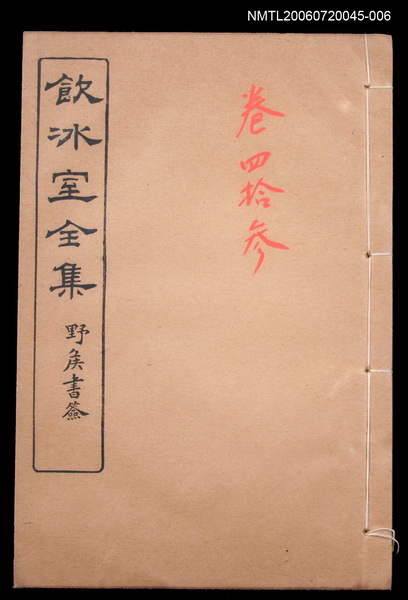 NMTL20060720045-006
卷四拾參
飲冰室全集
野矦書簽